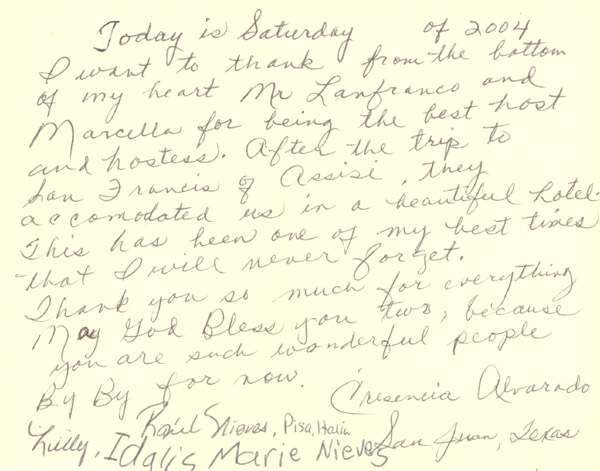 Today is Saturday of 2004
I want to thank from the bottom
of my heart Mr Lanfranco and
Marcella for being the best host
and hostess. After the trip to
San Francis of Assisi, they
accomodated us in a beautiful hotel.
This has been one of my best times
that I will never forget.
Thank you so much for everything
May God Bless you two, because
you are such wonderful people
By By for now. Cresencia Alvarado
Raúl Nieves, Pisa, Italia San Juan, Texas
Lilly, Idalis Marie Nieves